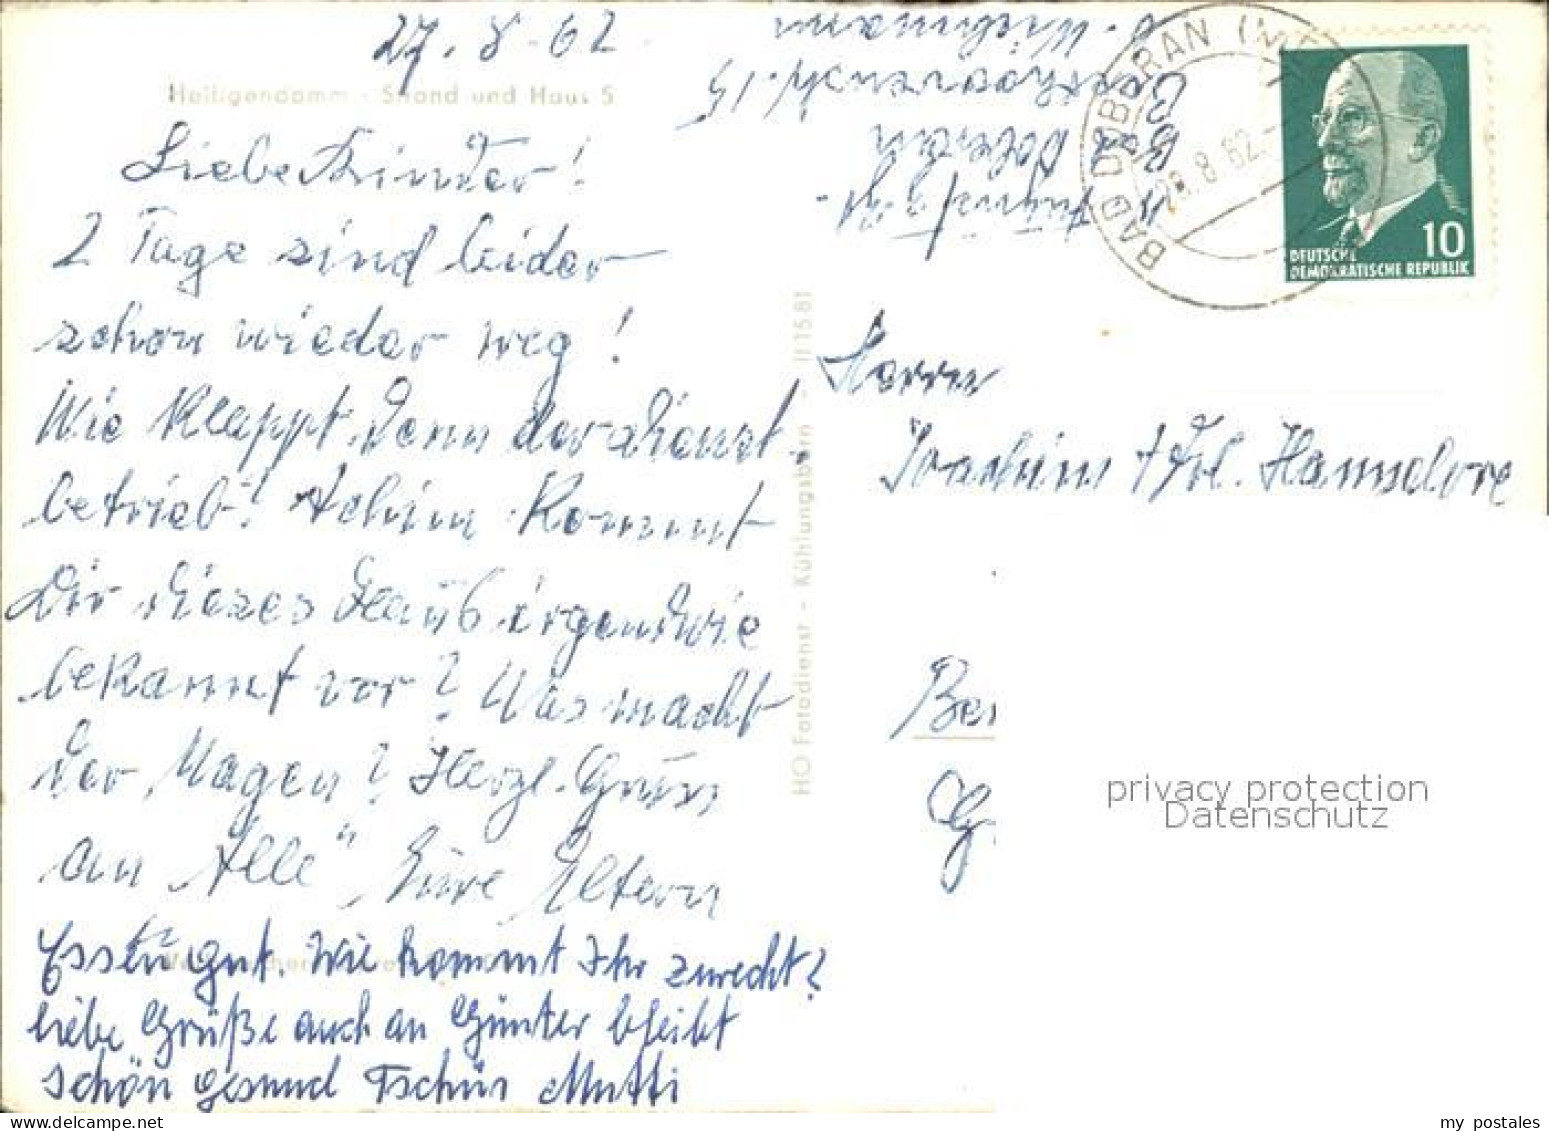 27. 8. 62
Heiligendamm - Strand und Haus 5
Liebe Kinder!
2 Tage sind leider
schon wieder weg!
Wie klappt denn der Dienst-
betrieb! Achim kommt
Dir dieses Haus irgendwie
bekannt vor? Was macht
der Magen? Herzl. Grüss
an "Alle" Eure Eltern
Essen gut. Wie kommt Ihr zurecht?
liebe Grüße auch an Günter bleibt
schön gesund Tschüs Mutti
HO Fotodienst - Kühlungsborn - II 15 81
Doberan
BAD DOBERAN
28.8.62
10
DEUTSCHE
DEMOKRATISCHE REPUBLIK
Herrn
Joachim + Frl. Hannelore
Ber
G
privacy protection
Datenschutz
my postales